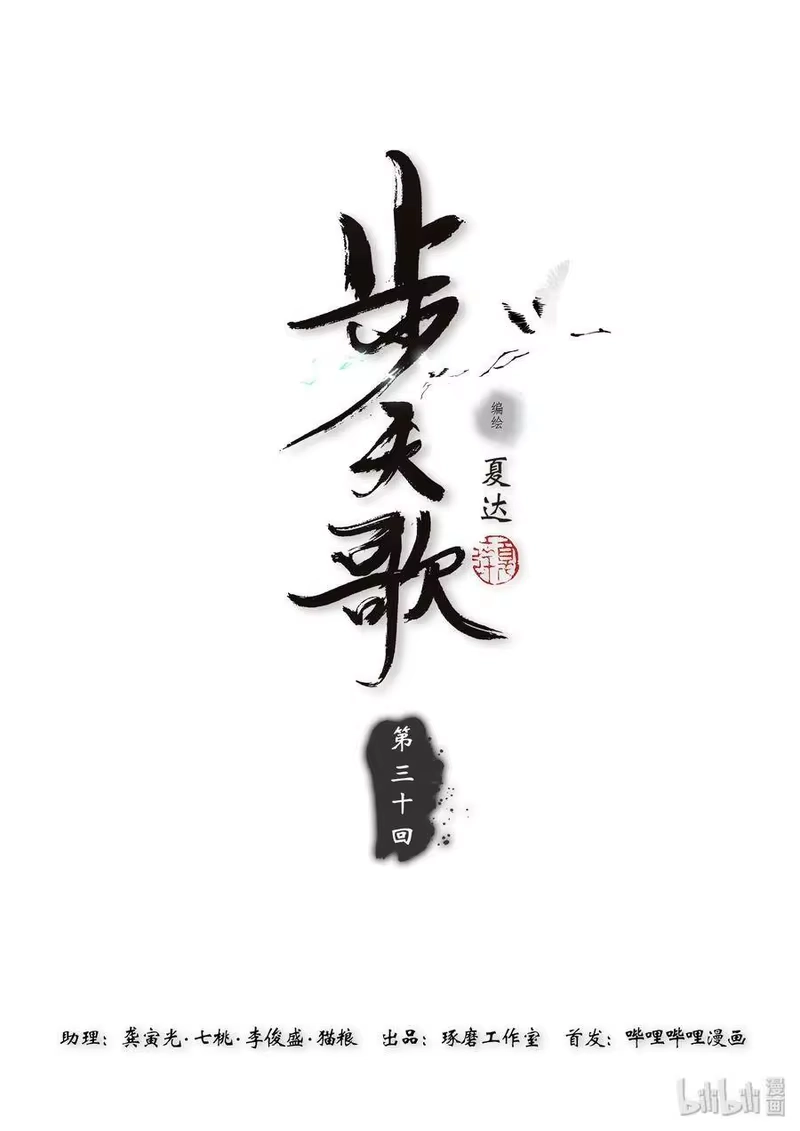 步天歌
编绘
夏达
夏达
第三十回
助理：龚寅光·七桃·李俊盛·猫粮 出品：琢磨工作室 首发：哔哩哔哩漫画
bilibili 漫画